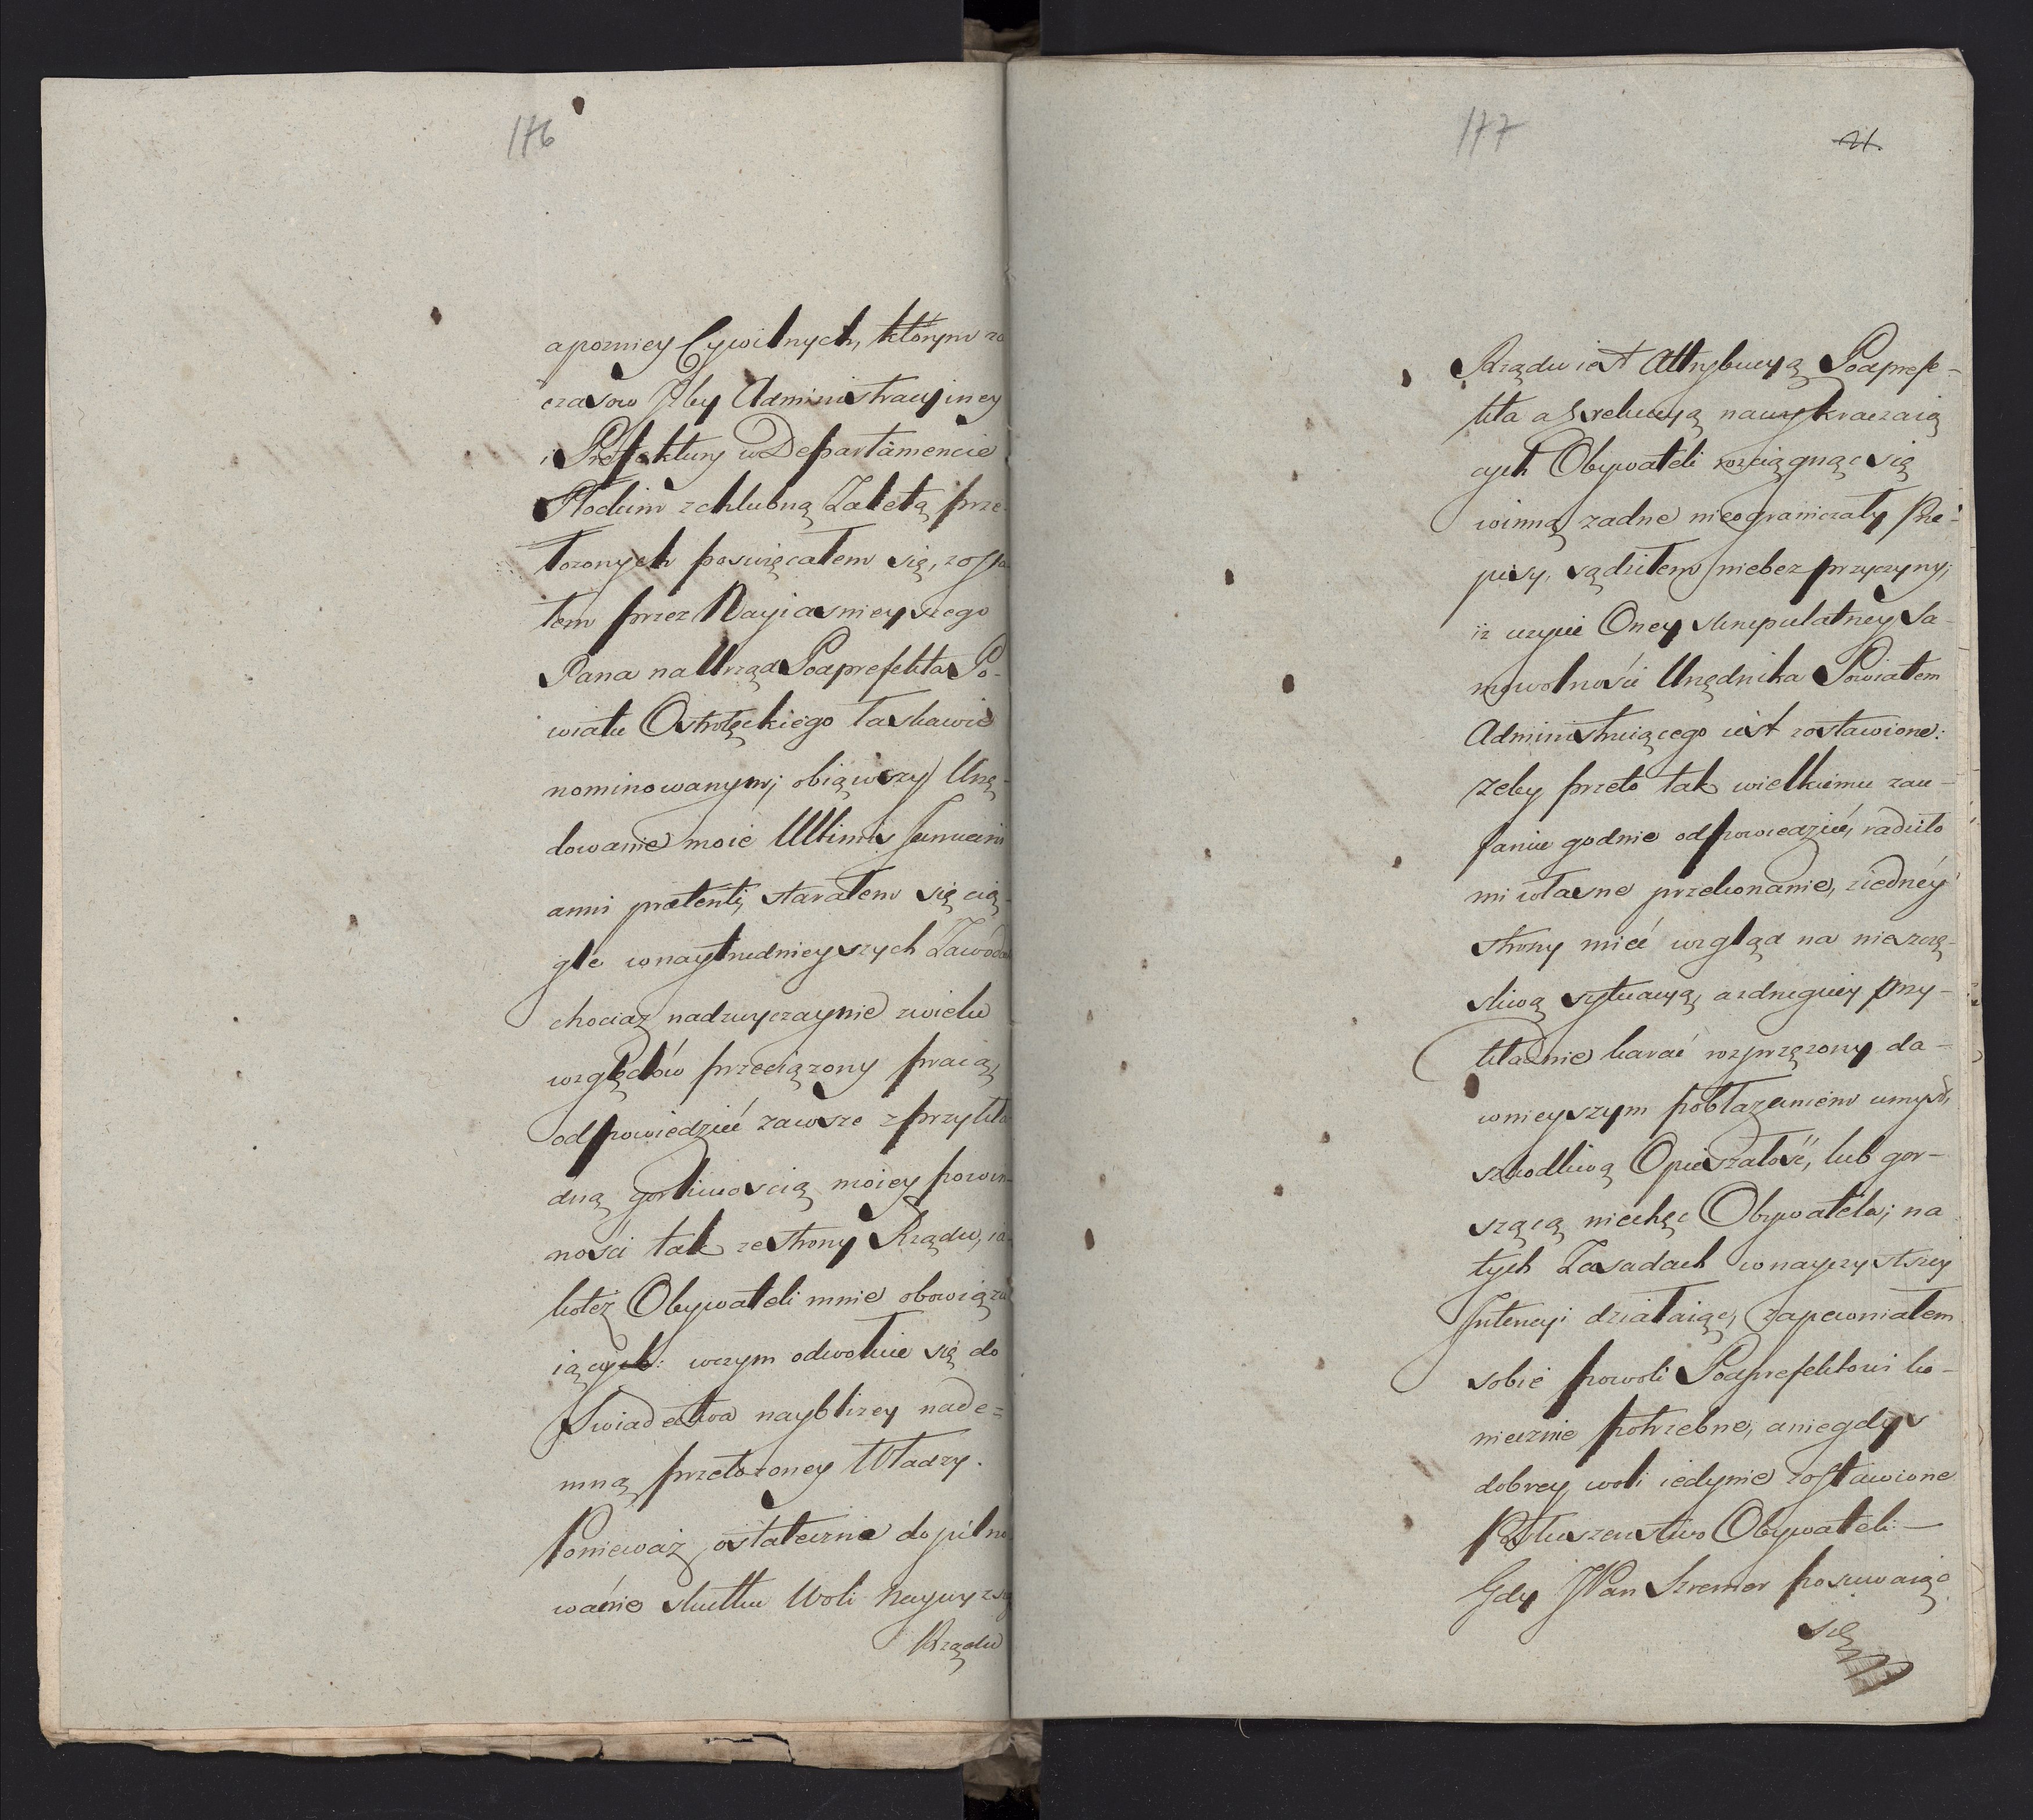 176
apozniey Cywilnych, którym za
czasow Izby Administracyiney
i Prefektury w Departamencie
Płockim z chlubną Zaletą prze-
łożonych poswięcałem się, zosta
łem przez Nayiasnieyszego
Pana na Urząd Podprefekta Po-
wiatu Ostrołęckiego łaskawie
nominowanym; obiąwszy Urzę-
dowanie moie Ultimis Januarii
anni praeteriti, starałem się cią-
gle w naytrudnieyszych Zawodach
chociaz nadzwyczaynie z wielu
względów przeciązony pracą,
odpowiedzieć zawsze z przykła
dną gorliwoscią moiey powin-
ności tak ze strony Rządu, ia-
koteż Obywateli mnie obowiązu
iących: w czym odwołuie się do
Swiadectwa naybliżey nade=
mną przełożoney Władzy.
Ponieważ ostatecznie dopilno
wanie skutku Woli Naywyższego
Rządu
177
21.
Rządu iest Attrybucyą Podprefe-
kta a Exekucyą na wykraczaią
cych Obywateli rozciągnąć się
winną zadne nieograniczały Prze-
pisy, sądziłem niebez przyczyny,
iz uzycie Oney skrupulatney Sa-
mowolności Urzędnika Powiatem
Administruiącego iest zostawione:
zeby przeto tak wielkiemu zau-
faniu godnie odpowiedzieć, radziło
mi własne przekonanie, z iedney
strony mieć wzgląd na nieszczę-
sliwą sytuacyą, a z drugiey przy-
kładnie karać rozprzężony da-
wnieyszym pobłażaniem umysł,
szkodliwą Opieszałość, lub gor-
szącą niechęc Obywatela; na
tych Zasadach w nayczystszey
Intencyi działaiąc, zapewniałem
sobie powoli Podprefektowi ko-
niecznie potrzebne, a niegdys
dobrey woli iedynie zostawione
Posłuszenstwo Obywateli.—
Gdy JPan Kremer posuwaiąc
się